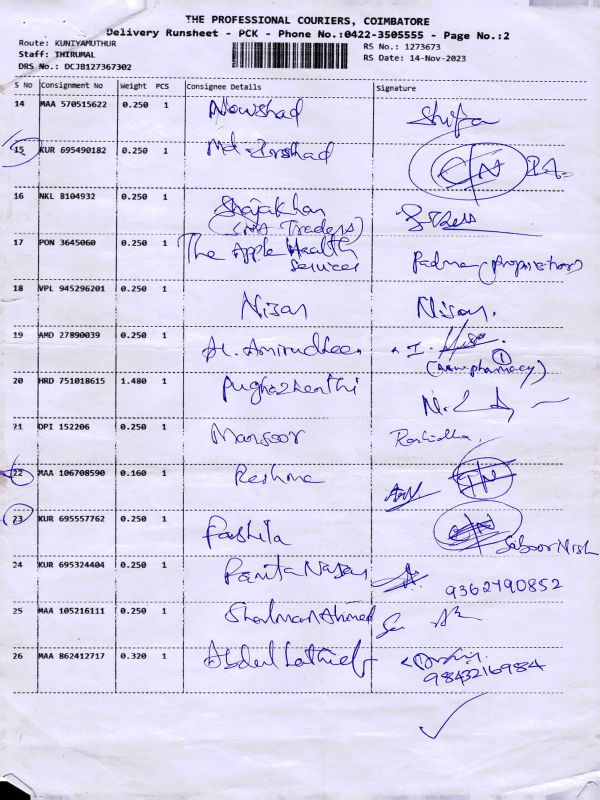 THE PROFESSIONAL COURIERS, COIMBATORE
Delivery Runsheet - PCK - Phone No.:0422-3505555 - Page No.:2
Route: KUNIYAMUTHUR
Staff: THIRUMAL
DRS No.: DCJB127367302
RS No.: 1273673
RS Date: 14-Nov-2023
S No Consignment No Weight PCS Consignee Details Signature
14 MAA 570515622 0.250 1 Nowshad
15 KUR 695490182 0.250 1 Md. Irshad
16 NKL 8104932 0.250 1 Shajakhan
(SNA Traders)
17 PON 3645060 0.250 1 The Apple Health Padma (proprietor)
Services
18 VPL 945296201 0.250 1 Nisar Nisar.
19 AMD 27890039 0.250 1 H. Amirudheen I.
(New pharmacy) 1
20 HRD 751018615 1.480 1 Pughazhenthi
21 OPI 152206 0.250 1 Mansoor Rashidha,
22 MAA 106708590 0.160 1 Reshma
23 KUR 695557762 0.250 1 Fashila Saboor Nish
24 KUR 695324404 0.250 1 9362790852
25 MAA 105216111 0.250 1 Shalman Ahmed
26 MAA 862412717 0.320 1 Abdul Lathief
9843216984